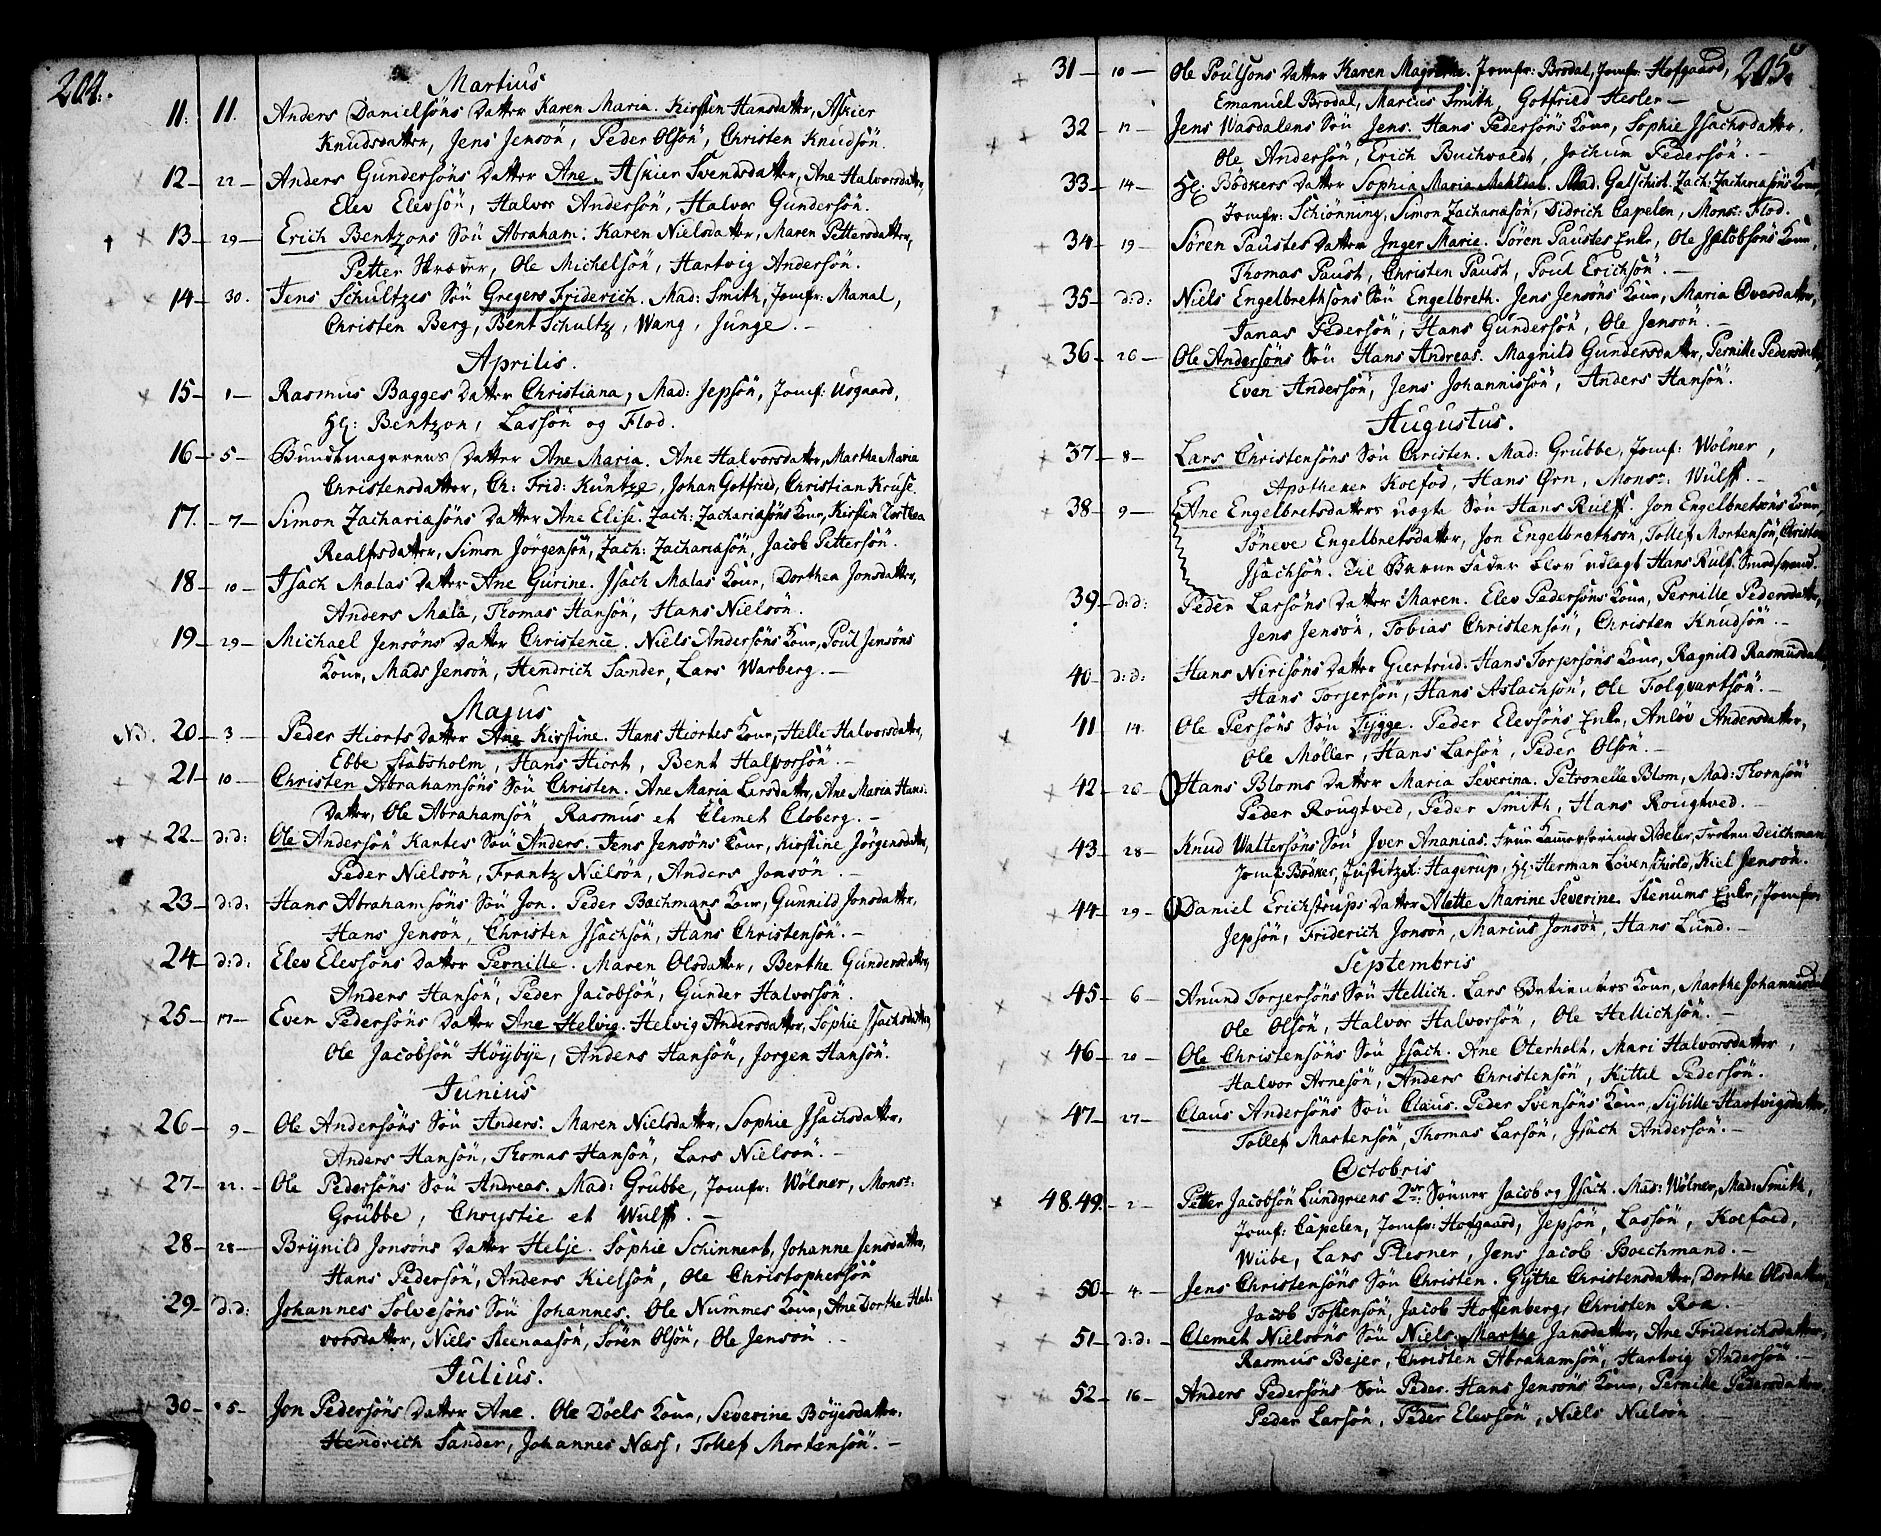 204.
Martius
11. 11. Anders Danielsöns Datter Karen Maria. Kirsten Hansdatter, Askier
Knudsdatter, Jens Jensön, Peder Olsön, Christen Knudsön.
12 – 22 – Anders Gundersöns Datter Ane. Askier Svendsdatter, Ane Halvorsdatter,
Elev Elevsön, Halvor Andersön, Halvor Gundersön.
13 – 29 – Erich Bentzons Sön Abraham. Karen Nielsdatter, Maren Pettersdatter,
Petter, Ole Michelsön, Hartvig Andersön.
14 – 30. Jens Schultzes Sön Gregers Friderich. Mad: Smith, Jomfr: Manal,
Christen Berg, Bent Schultz, Wang, Junge. –
Aprilis.
15 – 1 – Rasmus Bagges Datter Christiana, Mad: Jepsön, Jomf: Usgaard,
Hl: Bentzon, Lassön og Flod.
16 – 5 – Bundtmagerens Datter Ane Maria. Ane Halvorsdatter, Marthe Maria
Christensdatter, Ch: Frid: Küntze, Johan Gotfried, Christian Kruse.
17. – 7 – Simon Zachariæsöns Datter Ane Elise. Zach: Zachariæsöns Kone, Kirsten Dorthea
Realfsdatter, Simon Jörgensön, Zach: Zachariæsön, Jacob Pettersön.
18 – 10 – Isach Malas Datter Ane Gurine. Isach Malas Kone, Dorthea Jonsdatter,
Anders Mala, Thomas Hansön, Hans Nielsön.
19 – 29 – Michael Jensöns Datter Christence. Niels Andersöns Kone, Poul Jensöns
Kone, Mads Jensön, Hendrich Sander, Lars Warberg. –
Majus
NB. 20 – 3 – Peder Hiorts Datter Ane Kirstine. Hans Hiortes Kone, Helle Halvorsdatter,
Ebbe Stabsholm, Hans Hiort, Bent Halvorsön. –
21 – 10 – Christen Abrahamsöns Sön Christen. Ane Maria Larsdatter, Ane Maria Hans
Datter, Ole Abrahamsön, Rasmus et Clemet Cloberg. –
22 – d:d: Ole Andersön Kantes Sön Anders. Jens Jensöns Kone, Kirstine Jörgensdatter,
Peder Nielsön, Frantz Nielsön, Anders Jonsön. –
23 – d:d: Hans Abrahamsöns Sön Jon. Peder Bæchmans Kone, Gunnild Jonsdatter,
Hans Jensön, Christen Isachsön, Hans Christensön. –
24 – d:d: Elev Elevsöns Datter Pernille. Maren Olsdatter, Berthe Gundersdatter,
Anders Hansön, Peder Jacobsön, Gunder Halvorsön.
25 – 17 – Even Pedersöns Datter Ane Helvig. Helvig Andersdatter, Sophie Isachsdatter,
Ole Jacobsön Höybye, Anders Hansön, Jörgen Hansön.
Junius
26 – 9 – Ole Andersöns Sön Anders. Maren Nielsdatter, Sophie Isachsdatter,
Anders Hansön, Thomas Hansön, Lars Nielsön. –
27 – 22. – Ole Pedersöns Sön Andreas. Mad: Grubbe, Jomfr: Wölner, Monsr:
Grubbe, Chrystie et Wulff. –
28 – 28 – Brynild Jonsöns Datter Helje. Sophie Schinnert, Johanne Jensdatter,
Hans Pedersön, Anders Kielsön, Ole Christophersön
29 – d:d: Johannes Solvesöns Sön Johannes. Ole Nummes Kone, Ane Dorthe Hal-
vorsdatter, Niels Steenaasön, Sören Olsön, Ole Jensön. –
Julius.
30 – 5 – Jon Pedersöns Datter Ane. Ole Döels Kone, Severine Böyesdatter,
Hendrich Sander, Johannes Næss, Tollef Mortensön. –
205.
31 – 10 – Ole Poulsons Datter Karen. Jomfr: Brodal, Jomfr: Hofgaard,
Emanuel Brodal, Marcus Smith, Gotfried Hesler –
32 – 12 – Jens Wasdalens Sön Jens. Hans Pedersöns Kone, Sophie Isachsdatter,
Ole Andersön, Erich Buchvaldt, Jochum Pedersön. –
33 – 14 – Hl: Bödkers Datter Sophia Maria Mehldal. Mad: Galschiöt, Zach: Zachariæsöns Kone,
Jomfr: Schiönning, Simon Zachariæsön, Didrich Capelen, Monsr: Flod.
34 – 19 – Sören Paustes Datter Inger Marie. Sören Paustes Enke, Ole Jacobsöns Kone,
Thomas Paust, Christen Paust, Poul Erichsön. –
35 – d:d: Niels Engelbrethsons Sön Engelbreth. Jens Jensöns Kone, Maria Ovesdatter,
Janas Pedersön, Hans Gundersön, Ole Jensön. –
36 – 26 – Ole Andersöns Sön Hans Andreas. Magnild Gundersdatter, Pernille Pedersdatter,
Even Andersön, Jens Johannissön, Anders Hansön.
Augustus.
37 – 8 – Lars Christensöns Sön Christen. Mad: Grubbe, Jomf: Wölner,
Apotheker Koefod, Hans Örn, Monsr: Wulff. –
38 – 9 – Ane Engelbretsdatters uægte Sön Hans Rulff. Jon Engelbretsöns Kone,
Söneve Engelbretsdatter, Jon Engelbrethsön, Tollef Mortensön, Christen
Isachsön. Til Barne Fader blev udlagt Hans Rulf.
39 – d:d: Peder Larsöns Datter Maren. Elev Pedersöns Kone, Pernille Pedersdatter,
Jens Jensön, Tobias Christensön, Christen Knudsön. –
40 – d:d: Hans Nirisöns Datter Giertrud. Hans Torjersöns Kone, Ragnild Rasmusdatter
Hans Torjersön, Hans Aslachsön, Ole Folqvartsön. –
41 14. Ole Persöns Sön Tygge. Peder Elevsöns Enke, Anlöv Andersdatter,
Ole Moller, Hans Larsön, Peder Olsön. –
42 – 26 – Hans Bloms Datter Maria Severina. Petronelle Blom, Mad: Thornsön
Peder Rougtved, Peder Smith, Hans Rougtved. –
43 – 28 – Knud Waltersöns Sön Iver Ananias. Frue Adeler, Frøken Deichman
Jomf: Bödker, Justitzr: Hagerup, Hl: Herman Lövenskiold, Kiel Jensön.
44 – 29 – Daniel Erichstrups Datter Alette Marine Severine. Stenums Enke, Jomfr:
Jepsön, Friderich Jonsön, Marius Jonsön, Hans Lund. –
Septembris
45 – 6 – Anund Torjersöns Sön Hellich. Lars Betienters Kone, Marthe Johannisdatter
Ole Olsön, Halvor Halvorsön, Ole Hellichsön. –
46 – 20 – Ole Christensöns Sön Isach. Ane Oterholt, Mari Halvorsdatter,
Halvor Arnesön, Anders Christensön, Kittil Pedersön.
47 – 27 – Claus Andersöns Sön Claus. Peder Svensöns Kone, Sybille Hartvigsdatter,
Tollef Mortensön, Thomas Larsön, Isach Andersön. –
Octobris
48. 49. – 2 – Petter Jacobsön Lundgreens 2de Sönner Jacob og Isach. Mad: Wölner, Mad: Smith,
Jomf: Capelen, Jomfr: Hofgaard, Jepsön, Lassön, Koefoed,
Wübe, Lars Plesner, Jens Jacob Boechmand. –
50 – 4. – Jens Christensöns Sön Christen. Gythe Christensdatter, Dorthe Olsdatter
Jacob Tostensön, Jacob Hoffenberg, Christen Roa.
51 – d:d: Clemet Nielsöns Sön Niels. Marthe Jansdatter, Ane Friderichsdatter,
Rasmus Bejer, Christen Abrahamsön, Hartvig Andersön –
52 – 16 – Anders Pedersöns Sön Peder. Hans Jensöns Kone, Pernille Pedersdatter,
Peder Larsön, Peder Elevsön, Niels Nielsön